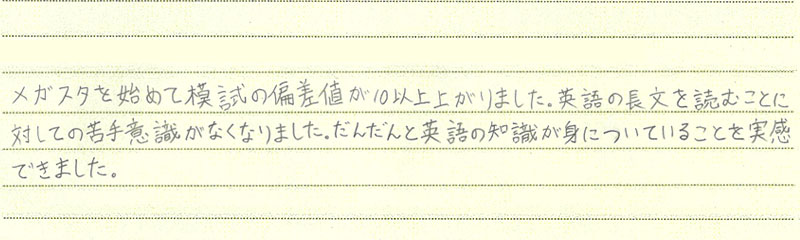 メガスタを始めて模試の偏差値が10以上上がりました。英語の長文を読むことに
対しての苦手意識がなくなりました。だんだんと英語の知識が身についていることを実感
できました。